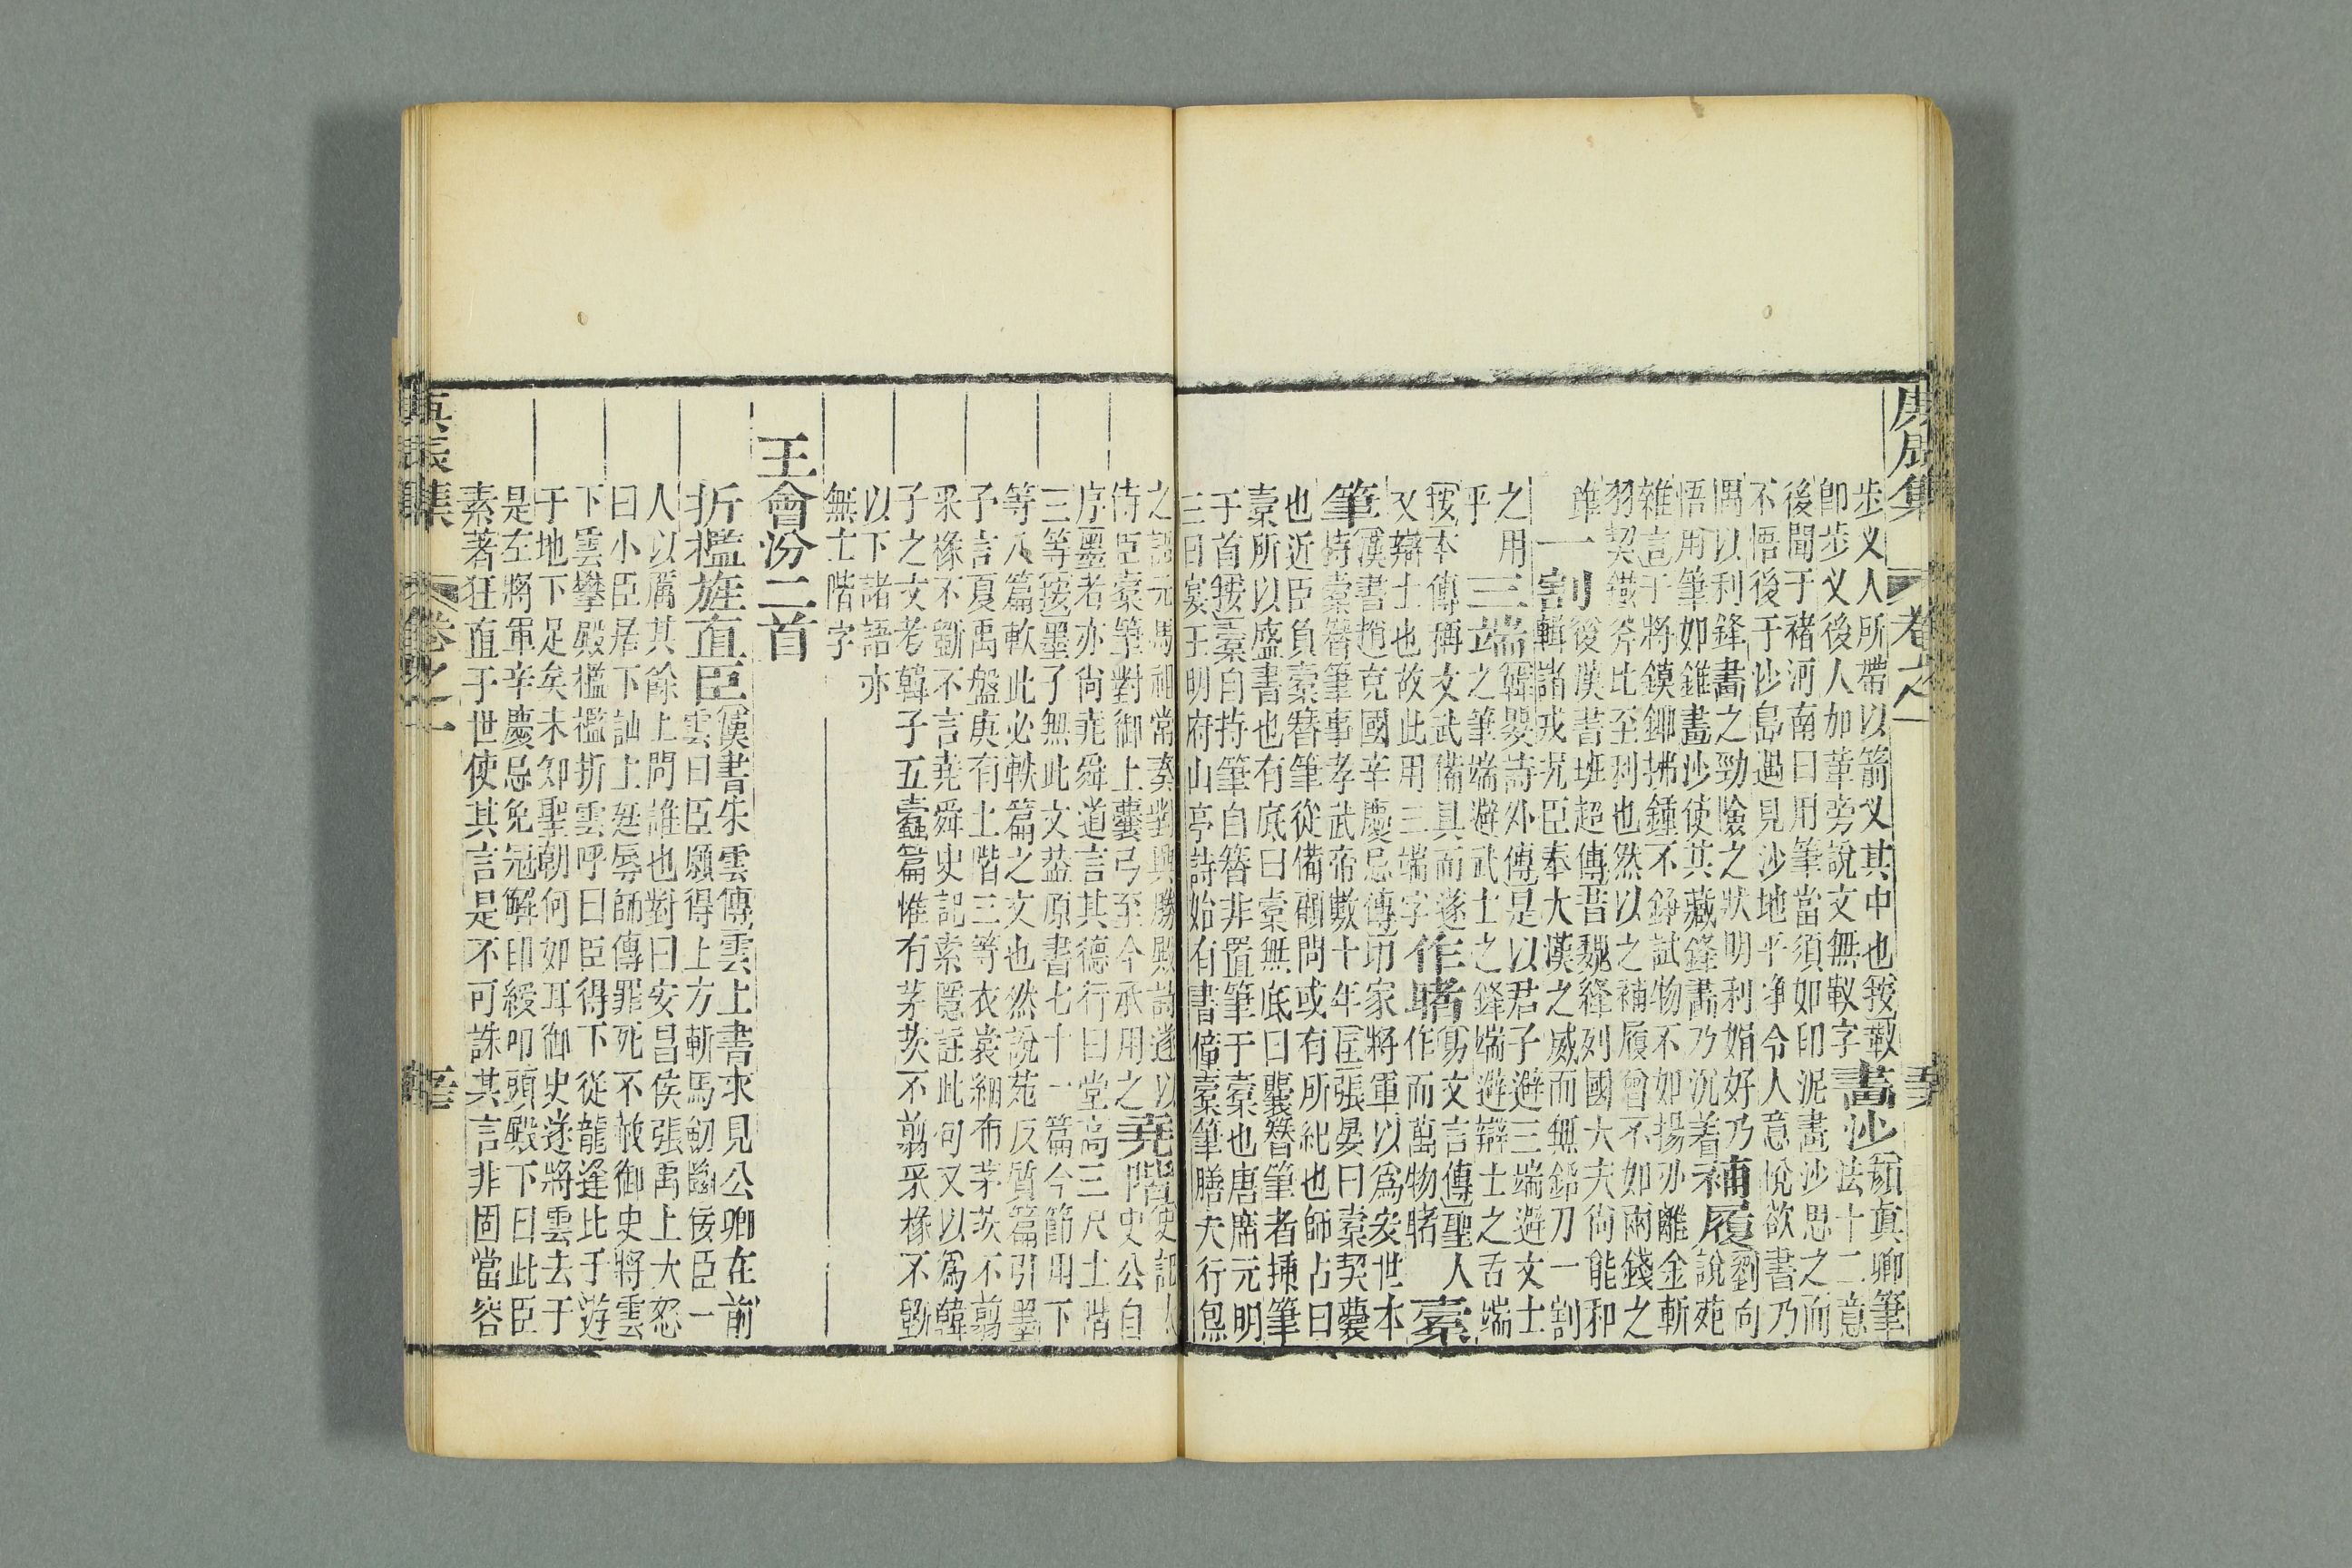 庚辰集 卷之一
步义人所帶以箭义其中也按靫
卽步义後人加革旁說文無靫字
畵沙
顔眞卿筆
法十二意
後聞于褚河南曰用筆當須如印泥畵沙思之而
不悟後于沙島遇見沙地平净令人意悅欲書乃
偶以利鋒畵之勁險之狀明利娟好乃
悟用筆如錐畵沙使其藏鋒畵乃沉着
補履
劉向
說苑
雜言干將鏌鋣拂鍾不錚試物不如揚刅離金斬
羽契鐵斧比至利也然以之補履曾不如兩錢之
錐
一割
後漢書班超傳昔魏絳列國大夫尙能和
輯諸戎况臣奉大漢之威而無鉛刀一割
之用
乎
三端
韓嬰詩外傳是以君子避三端避文士
之筆端避武士之鋒端避辯士之舌端
按本傳稱文武備具而遂
又辯士也故此用三端字
作睹
易文言傳聖人
作而萬物睹
橐
筆
漢書趙克國辛慶忌傳卭家將軍以爲安世本
持橐簪筆事孝武帝數十年注張晏曰橐契囊
也近臣負橐簪筆從備顧問或有所紀也師古曰
橐所以盛書也有底曰橐無底曰囊簪筆者揷筆
于首按橐自持筆自簪非置筆于橐也唐席元明
三日宴王明府山亭詩始有書僮橐筆膳夫行炰
之語元馬祖常奏對興勝殿詩遂以
侍臣橐筆對御上櫜弓至今承用之
堯階
史記太
史公自
序墨者亦尙堯舜道言其德行曰堂高三尺土階
三等按墨子無此文葢原書七十一篇今節用下
等八篇軼此必軼篇之文也然說苑反質篇引墨
子言夏禹盤庚有土階三等衣裳細布茅茨不翦
采椽不斵不言堯舜史記索隱註此句又以爲韓
子之文考韓子五蠹篇惟有茅茨不翦采椽不斵
以下諸語亦
無土階字
王會汾二首
折檻旌直臣
漢書朱雲傳雲上書求見公卿在前
雲曰臣願得上方斬馬劎斷佞臣一
人以厲其餘上問誰也對曰安昌侯張禹上大怒
曰小臣居下訕上廷辱師傅罪死不赦御史將雲
下雲攀殿檻檻折雲呼曰臣得下從龍逄比干遊
于地下足矣未知聖朝何如耳御史遂將雲去于
是左將軍辛慶忌免冠解印綬叩頭殿下曰此臣
素著狂直于世使其言是不可誅其言非固當容
庚辰集 卷之一